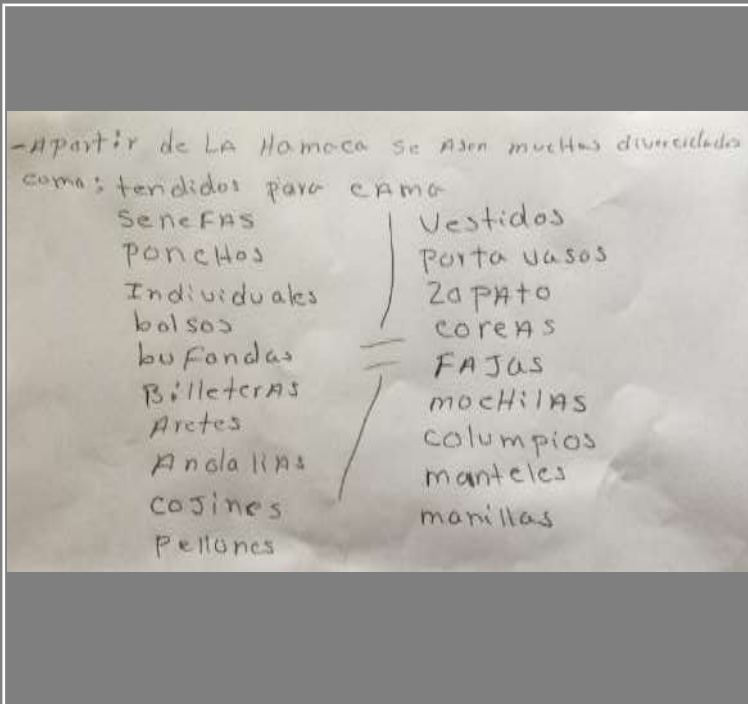 -Apartir de LA Hamaca se Asen mucHas divercidades
como: tendidos para cAma
seneFAS
PoncHos
Individuales
bolsos
buFandas
BilleterAs
Aretes
AndaliAs
coJines
Pellones
Vestidos
Porta vasos
ZapAto
coreAs
FAJas
mocHilAs
columpios
manteles
manillas